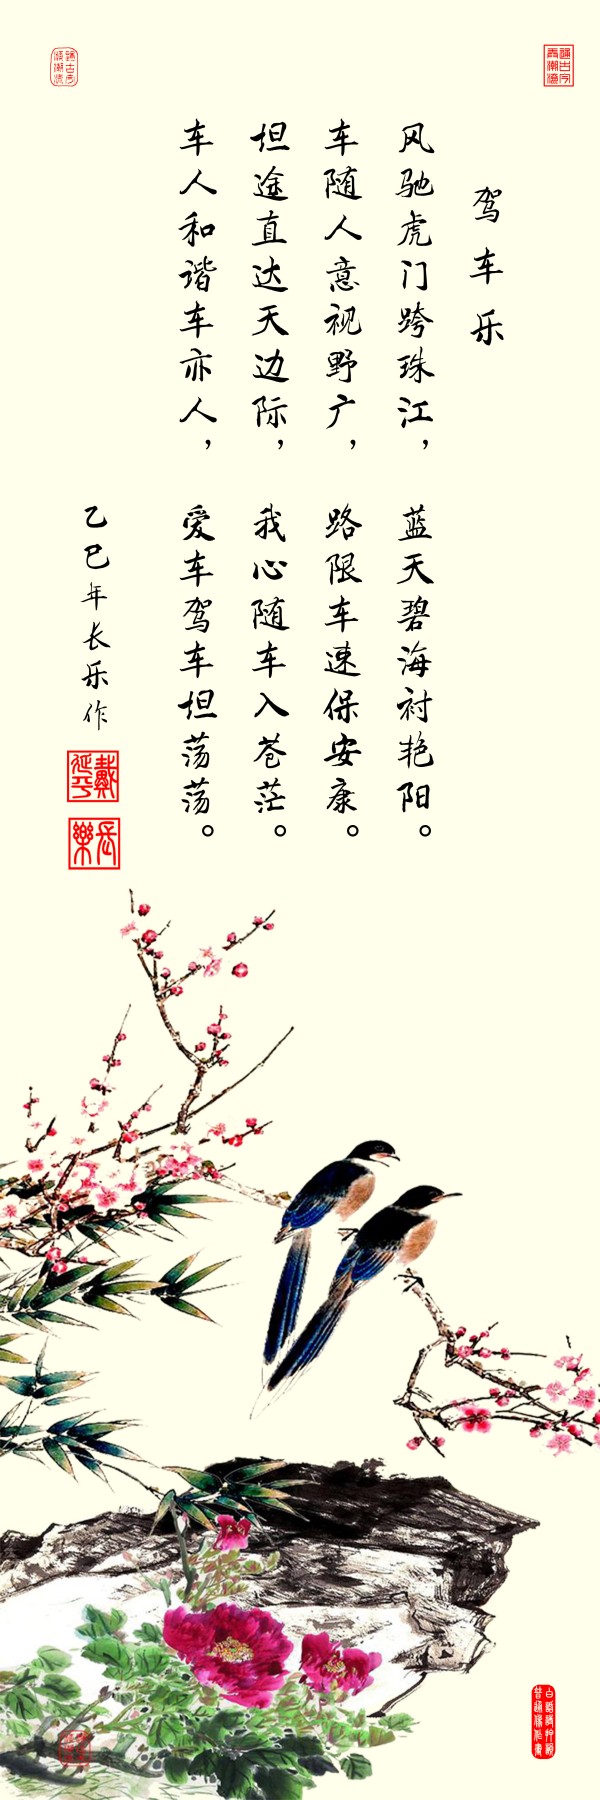 驾车乐
风驰虎门跨珠江，蓝天碧海衬艳阳。
车随人意视野广，路限车速保安康。
坦途直达天边际，我心随车入苍茫。
车人和谐车亦人，爱车驾车坦荡荡。
乙巳年长乐作
戴延平
长樂